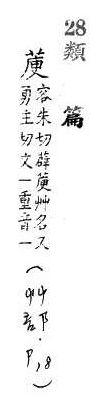 28 類篇
容朱切薜艸名又
勇主切文一重音一
(艸部·P.18)